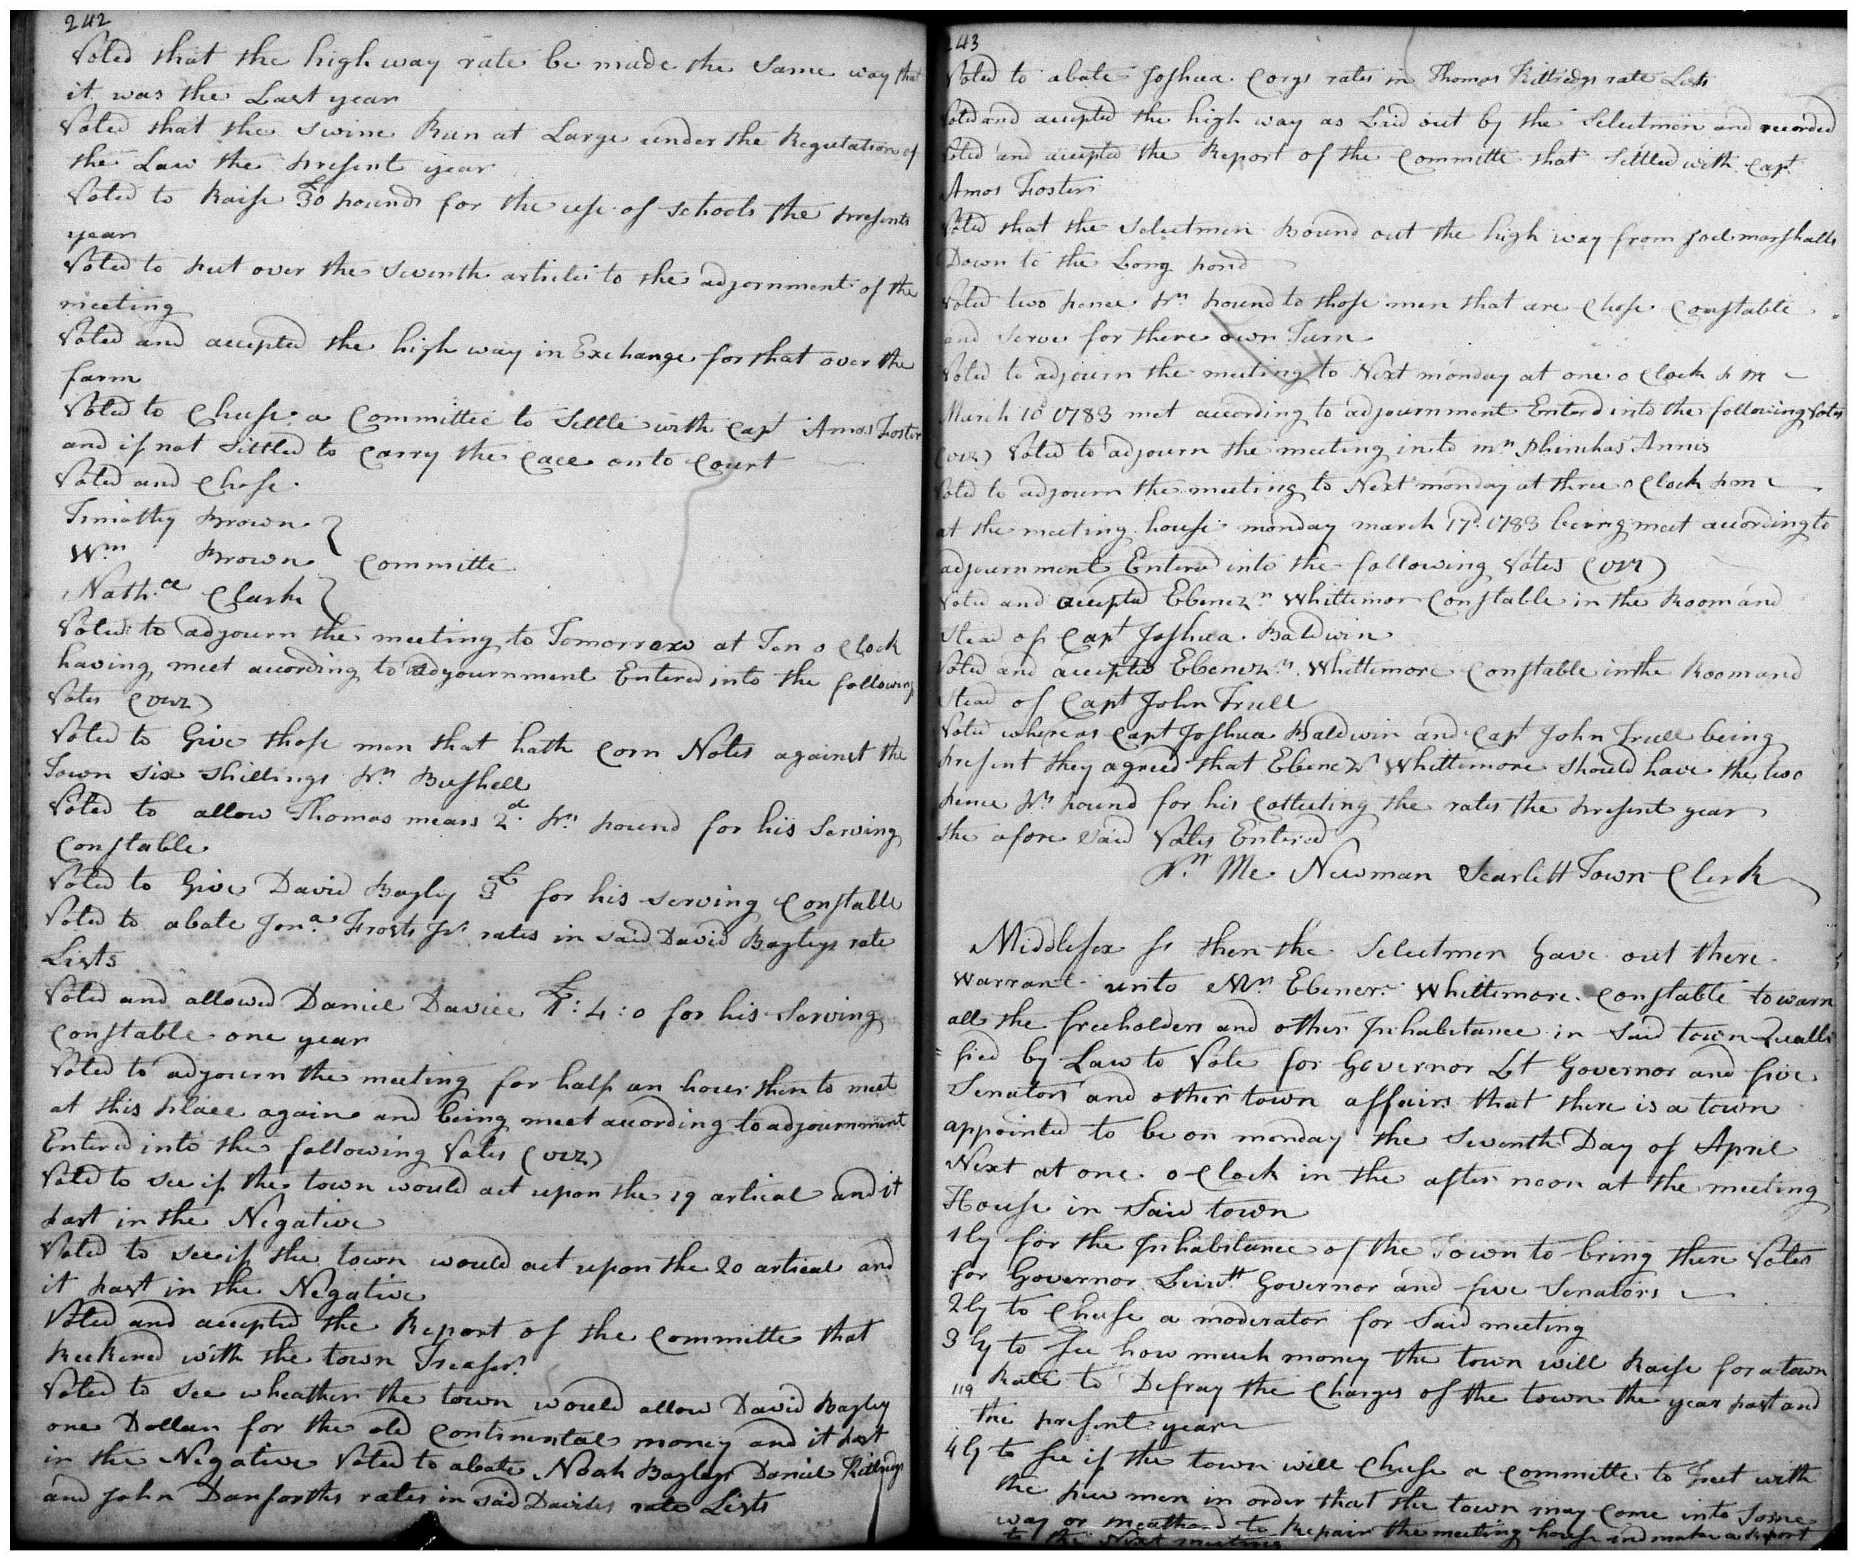 242
Voted that the high way rate be made the Same way that
it was the Last year
Voted that the Swine Run at Large under the Regulation of
the Law the present year
Voted to Raise £30 pounds for the use of Schools the present
year
Voted to put over the Seventh article to the adjornment of the
meeting
Voted and accepted the high way in Exchange for that over the
farm
Voted to Chuse a Committee to Settle with Capt Amos Foster
and if not Sittled to Carry the Cace on to Court
Voted and Chose
Timothy Brown
Wm Brown Committe
Nath.ll Clark
Voted to adjourn the meeting to Tomorrow at Ten o Clock
having meet according to adjournment Entered into the following
Votes (viz)
Voted to Give those men that hath Corn Notes against the
Town Six Shillings pr Bushell
Voted to allow Thomas mears 2d pr pound for his Serving
Constable
Voted to Give David Bayley £3 for his serving Constable
Voted to abate Jona Frosts Jr rates in said David Bayleys rate
Lists
Voted and allowed Daniel Davice £1:4:0 for his Serving
Constable one year
Voted to adjourn the meeting for half an hour then to meet
at this place again and being meet according to adjournment
Entered into the following Votes (viz)
Voted to see if the town would act upon the 19 artical and it
past in the Negative
Voted to see if the town would act upon the 20 artical and
it past in the Negative
Voted and accepted the Report of the Committe that
Reckened with the town Treasr
Voted to See wheather the town would allow David Bayley
one Dollar for the old Continental money and it past
in the Negative Voted to abate Noah Bayleys Daniel Kittredgs
and John Danforths rates in said Davides rate Lists
243
Voted to abate Joshua Corys rates in Thomas Kittredgs rate Lists
Voted and accepted the high way as Laid out by the Selectmen and recorded
Voted and accepted the Report of the Committe that Settled with Capt
Amos Foster
Voted that the Selectmen Bound out the high way from Joel marshalls
Down to the Long pond
Voted two pence pr pound to those men that are Chose Constable
and serve for there own Turn
Voted to adjourn the meeting to Next monday at one o Clock P M
March 10d 1783 met according to adjournment Enterd into the following Votes
(viz) Voted to adjourn the meeting into mr Phinehas Annis
Voted to adjourn the meeting to Next monday at three o Clock P m
at the meeting house monday march 17d 1783 being meet according to
adjournment Entered into the following Votes (viz)
Voted and accepted Ebenezr Whittemor Constable in the Room and
Stead of Capt Joshua Baldwin
Voted and accepted Ebenezr Whittemore Constable in the Room and
Stead of Capt John Trull
Voted whereas Capt Joshua Baldwin and Capt John Trull being
present they agreed that Ebenezr Whittemore should have the two
pence pr pound for his Collecting the rates the present year
the afore said Votes Entered
Pr Me Newman Scarlett Town Clerk
Middlesex Ss then the Selectmen Gave out there
Warrant unto Mr Ebenezr Whittemore Constable to warn
all the freeholders and other Inhabitance in Said town Qualli
=fied by Law to Vote for Governor Lt Governor and five
Senators and other town affairs that there is a town
appointed to be on monday the Seventh Day of April
Next at one o Clock in the after noon at the meeting
House in Said town
1ly for the Inhabitance of the Town to bring there Votes
for Governor Leiutt Governor and five Senators
2ly to Chuse a moderator for Said meeting
3ly to See how much money the town will Raise for a town
Rate to Defray the Charges of the town the year past and
119
the present year
4ly to See if the town will Chuse a Committe to Treet with
the pew men in order that the town may Come into Some
way or meathard to Repair the meeting house and make a Report
to the Next meeting